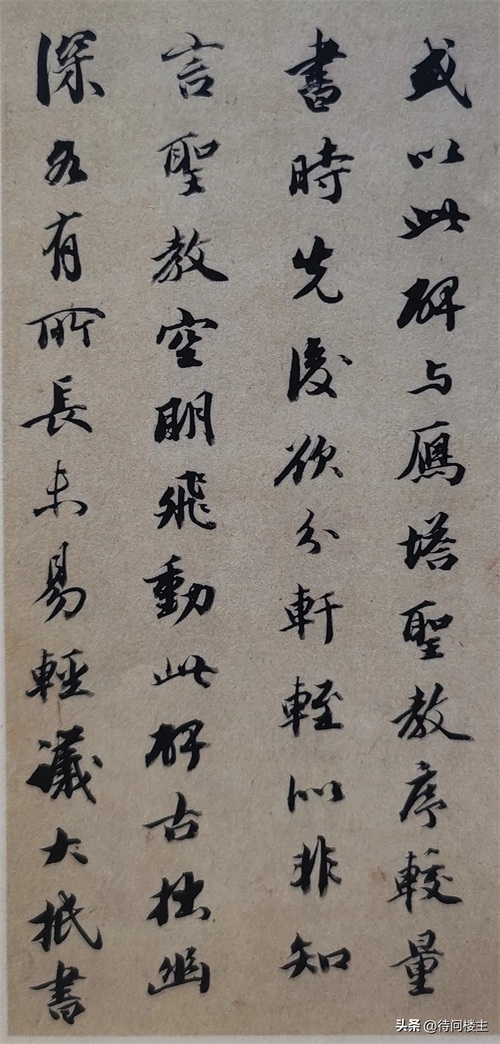 或以此碑与鴈塔聖教序較量
書時先後欲分軒輊似非知
言聖教空明飛動此碑古拙幽
深各有所長未易輕議大抵書
头条 @待问楼主